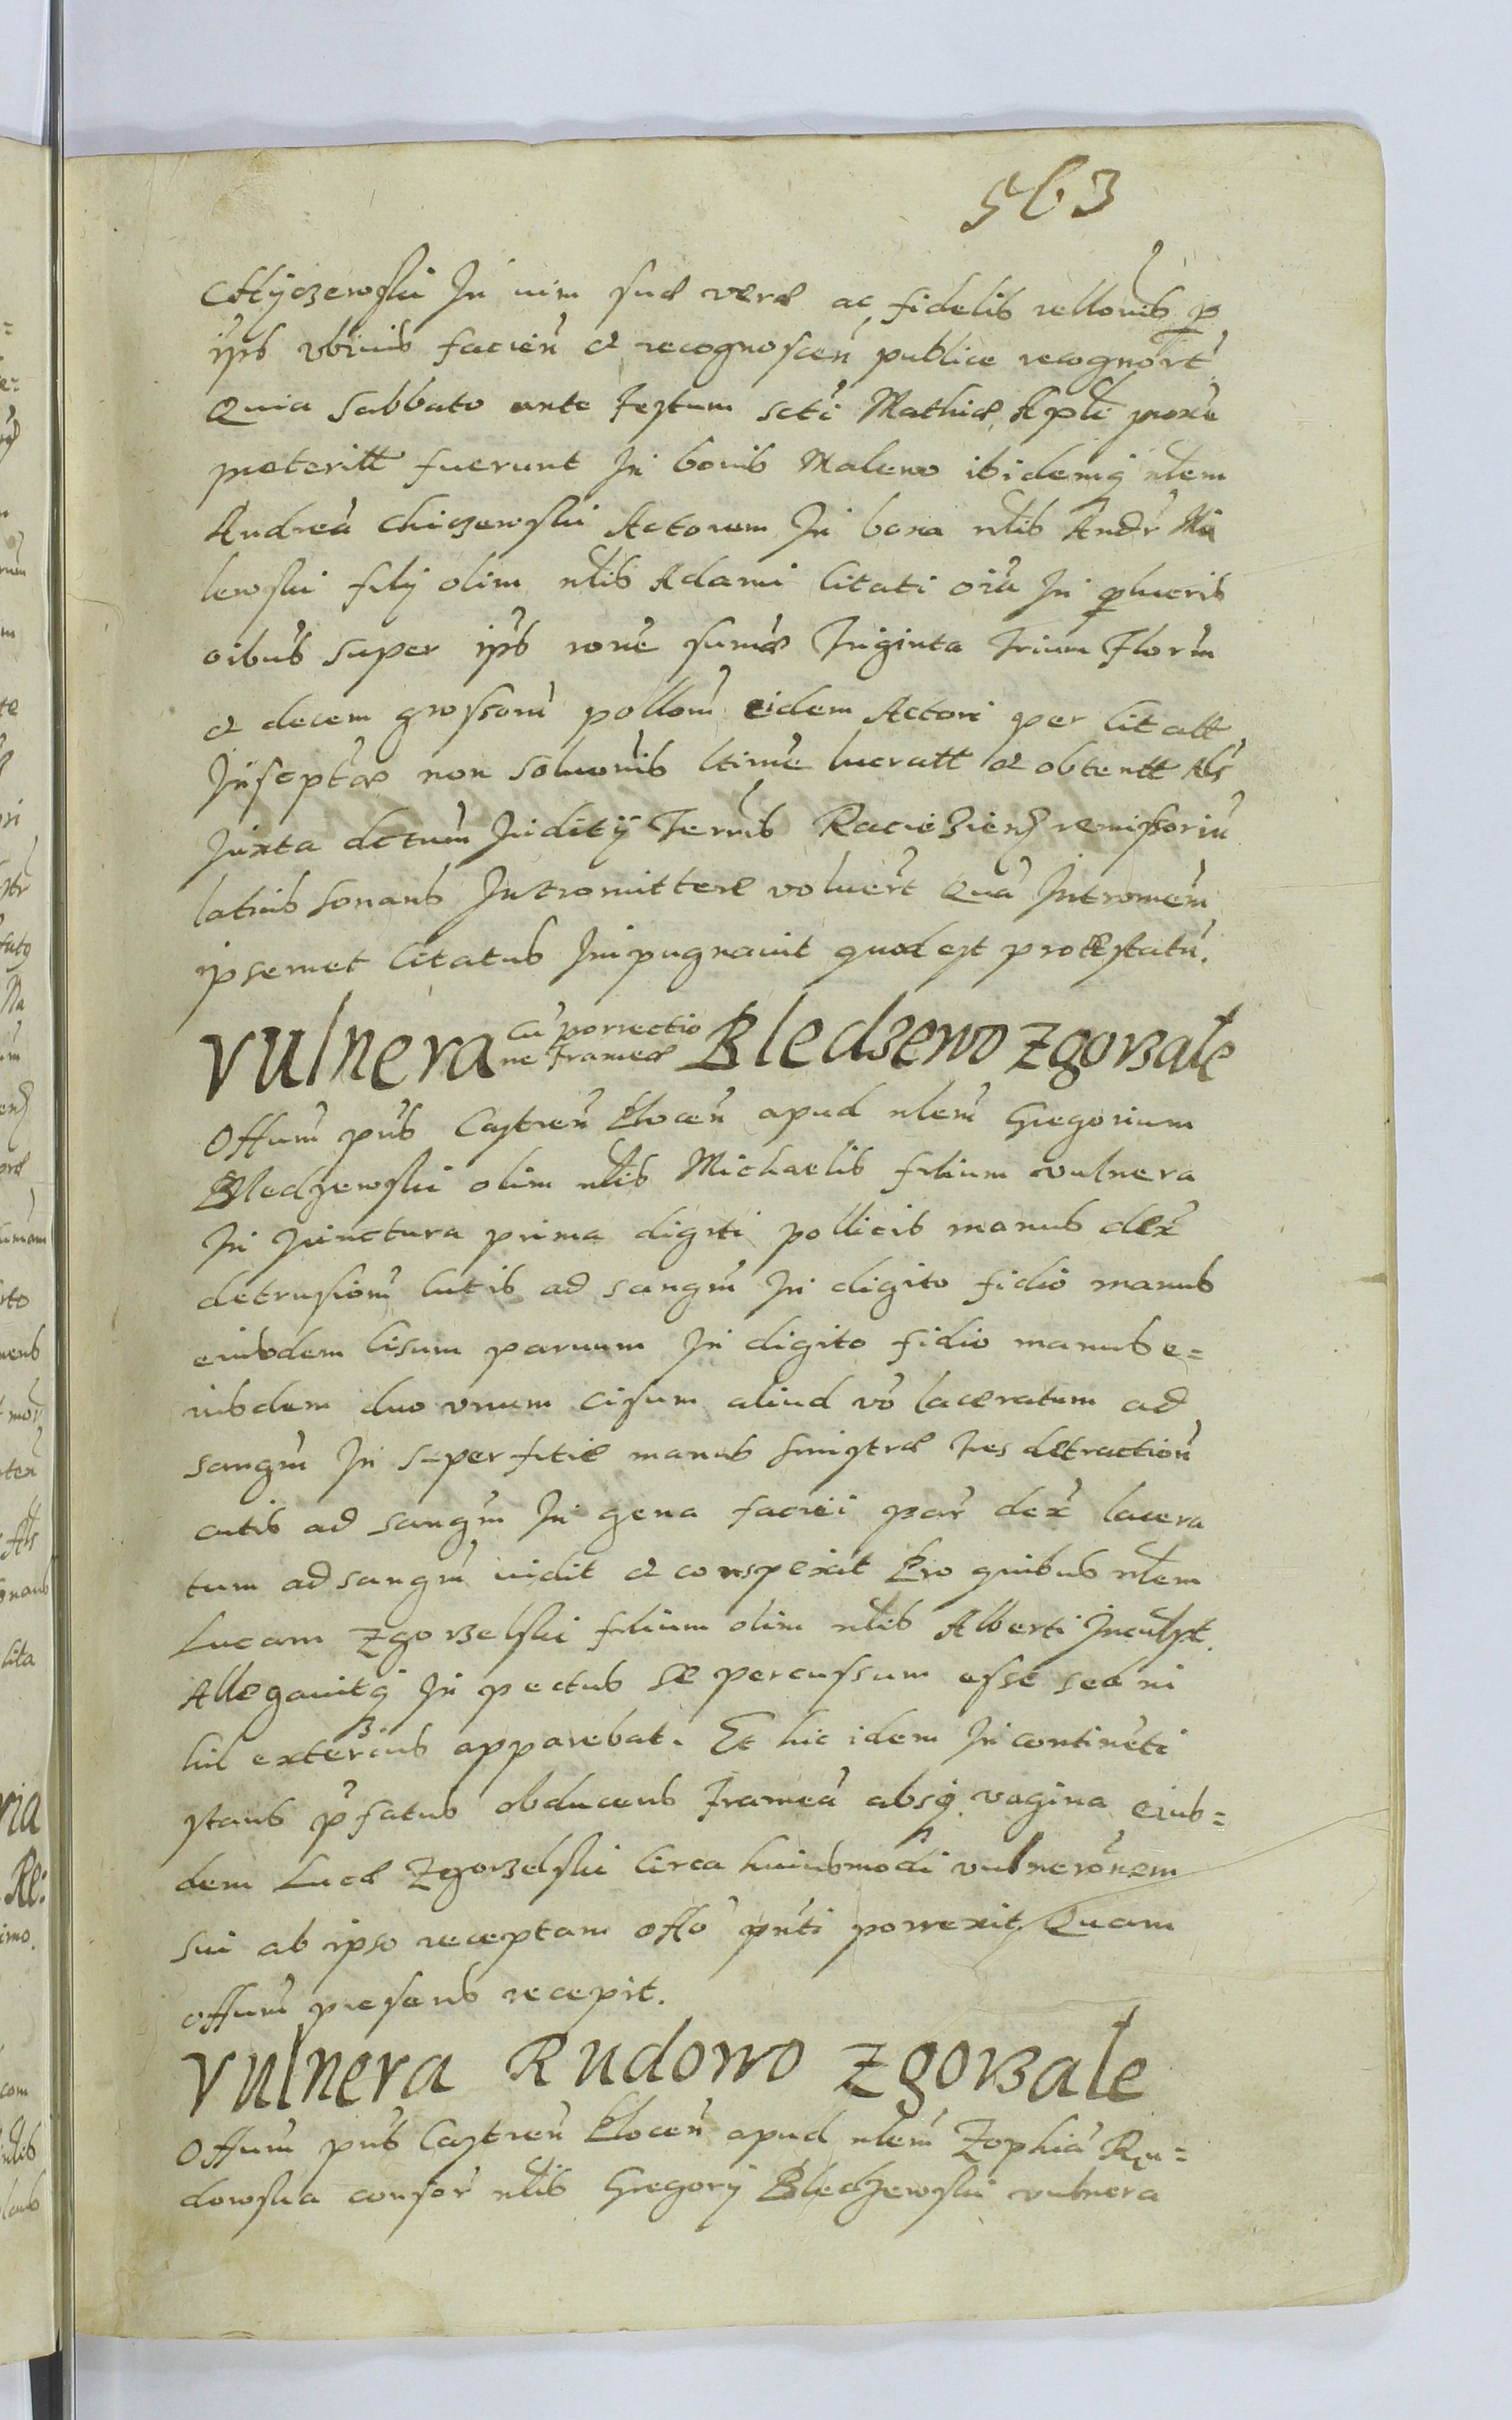 563
Chyczewski In vim suæ veræ ac fidelis rellonis p
ipẜ vbius facien̄ et recognoscen̄ publice recognort
Quia Sabbato ante Festum scti Mathiæ Apli proxe
preteritt fuerunt In bonis Malewo ibidemq nlem
Andreā Chiczewski Actorem In bona nlis Andr Ma
lewski filij olim nlis Adami Citati oia In plucris
oibus super ips rone sumæ Triginta Trium Florm
et decem grossorū pollom eidem Actori per Citatt
Inscptæ non Soluonis ltime lucratt et obtentt Als
Juxta dctum Juditij Terris Raciezien remissoriū
latius sonans Intromittere voluert Quā Intromem
ipsemet Citatus Impugnauit quod est protestatū.
Vulnera cū porrectio Bledzewo Zgorzałe
ne Frameæ
Offum pns Castren Plocen apud nlem Gregorium
Bledzewski olim nlis Michaelis filium vulnera
In Junctura prima digiti pollicis manus dex
detrusiom cutis ad sangm In digito fidio manus
eiusdem Cisum paruum In digito fidio manus e=
iusdem duo vnum cisum aliud vo laceratum ad
sangm In superfitie manus sinistræ tres detraction
cutis ad sangm In gena faciei par dex lacera
tum ad sangm vidit et conspexit Pro quibus nlem
Lucam Zgorzelski filium olim nlis Alberti Inculpt.
Allegauitq In pectus se percussum esse sed ni
hil exterius apparebat. Et hic idem In contineti
stans pfatus obducens Frameā absq vagina eius=
dem Lucæ Zgorzelski Circa huiusmodi vulneronem
sui ab ipso receptam offo pnti porrexit Quam
offum presens recepit.
Vulnera Rudowo Zgorzałe
Offum pns Castren Plocen apud nlem Zophiā Ru=
dowska consor nlis Gregorij Bledzewski vulnera